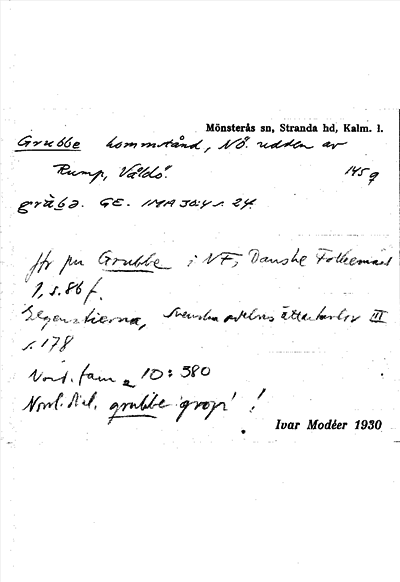 Mönsterås sn, Stranda hd, Kalm. l.
Grubbe kommstånd, NÖ. udden av
Rump, Valdö. 145 q
grùbə. GE. s. 24.
Jfr pn Grubbe i NF, Danske Folkeminder
1, s. 86 f.
Elgenstierna, Svenska adelns ättartavlor III
s. 178
Nord. fam. 10: 580
Norrl. dial. grubbe 'grop' !
Ivar Modéer 1930